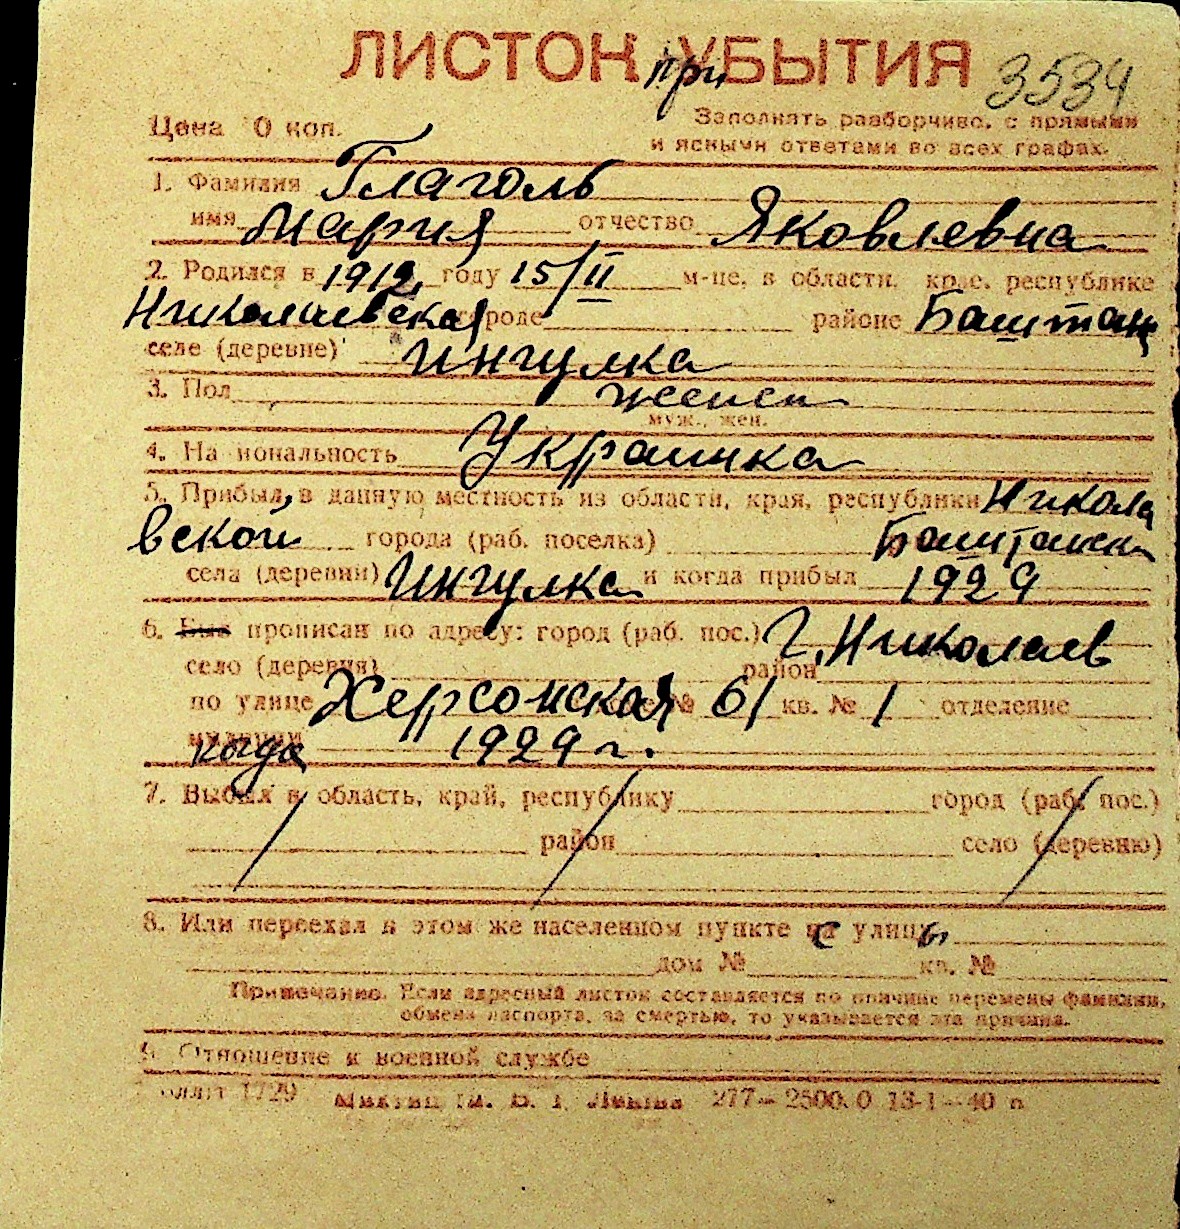 ЛИСТОК при УБЫТИЯ 3534
Цена 10 коп. Заполнять разборчиво, с прямыми
и ясными ответами во всех графах.
1. Фамилия Глаголь
имя Мария отчество Яковлевна
2. Родился в 1912 году 15/II м-це, в области, крае, республике
Николаевская городе районе Баштан
селе (деревне) Ингулка
3. Пол женск
муж., жен.
4. Национальность Украинка
5. Прибыл, в данную местность из области, края, республики Никола
вской города (раб. поселка) Баштанск
села (деревни) Ингулка и когда прибыл 1929
6. Был прописан по адресу: город (раб. пос.) г. Николаев
село (деревня) район
по улице Херсонская № 61 кв. № 1 отделение
милиции когда 1929 г.
7. Выбыл в область, край, республику город (раб. пос.)
район село (деревню)
8. Или переехал в этом же населенном пункте с улицы
дом № кв. №
Примечание. Если адресный листок составляется по причине перемены фамилии,
обмена паспорта, за смертью, то указывается эта причина.
9. Отношение к военной службе
1729 277—2500.0 13-1—40